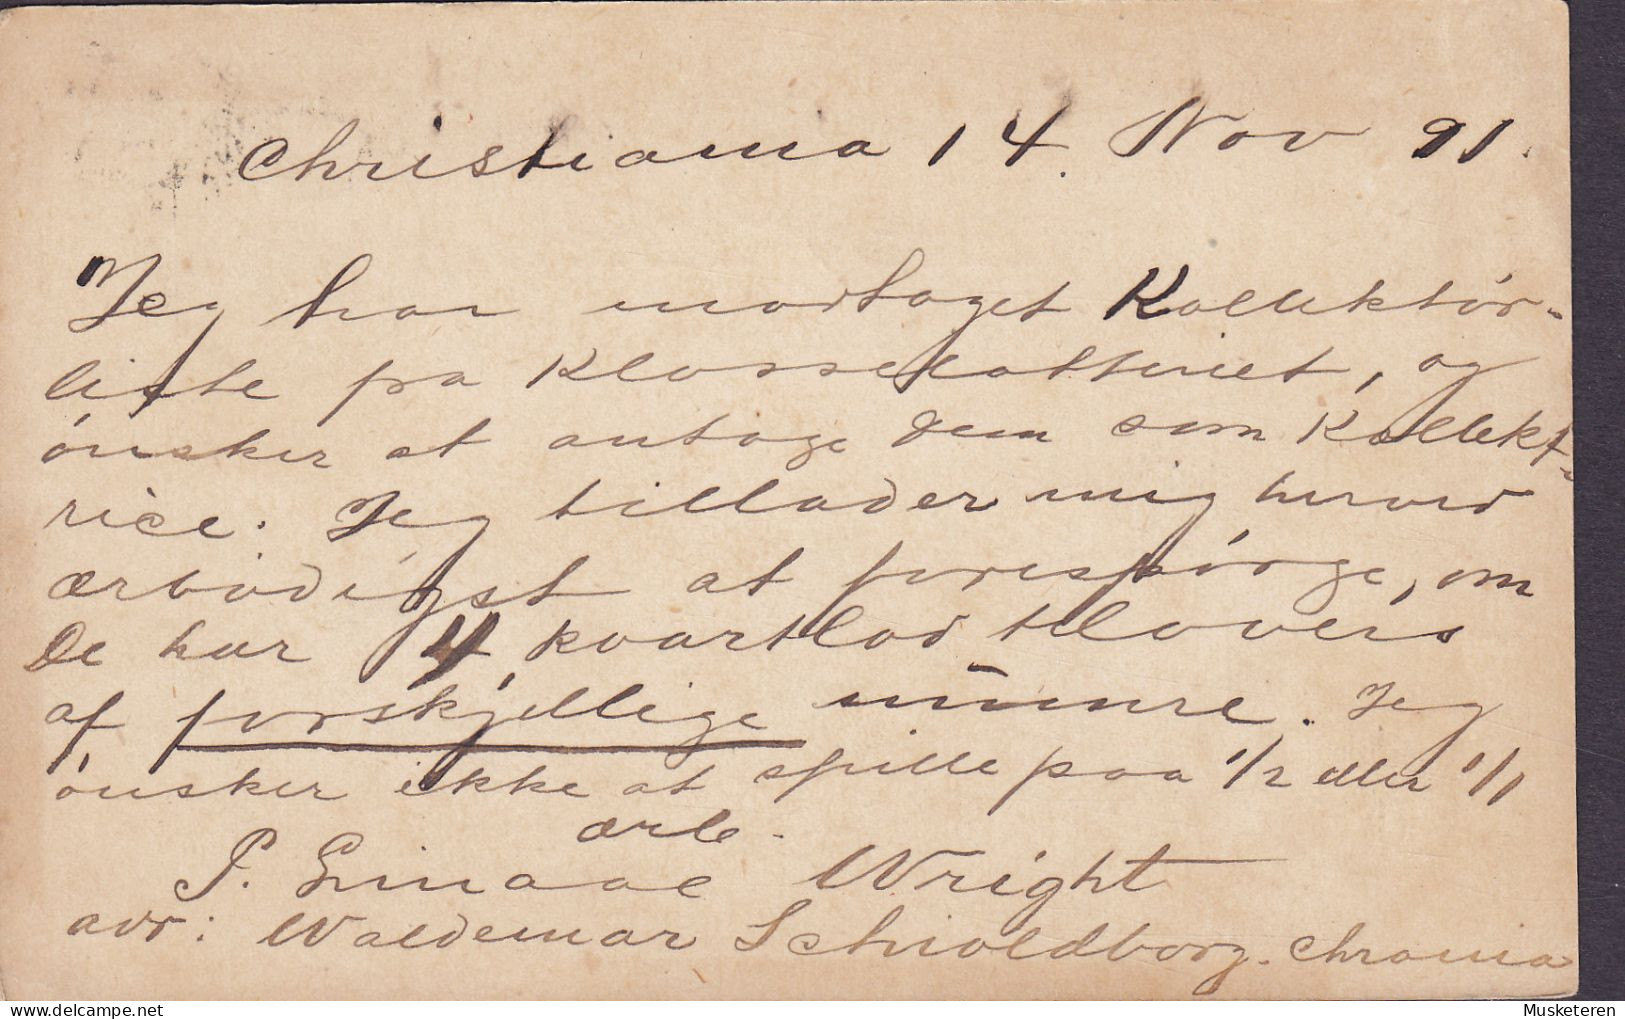 Christiania 14 Nov 91.
Jeg har modtaget Kollektör-
liste pa Klasselotteriet, og
önsker at antage Dem som Kollekt-
rice. Jeg tillader mig herved
ærbödigst at forespörge, om
De har 4 kvartlod tilovers
af forskjellige numre. Jeg
önsker ikke at spille paa 1/2 eller 1/1
ærb.
P. Wright
adr: Waldemar Schioldborg. Chrania
Musketeren